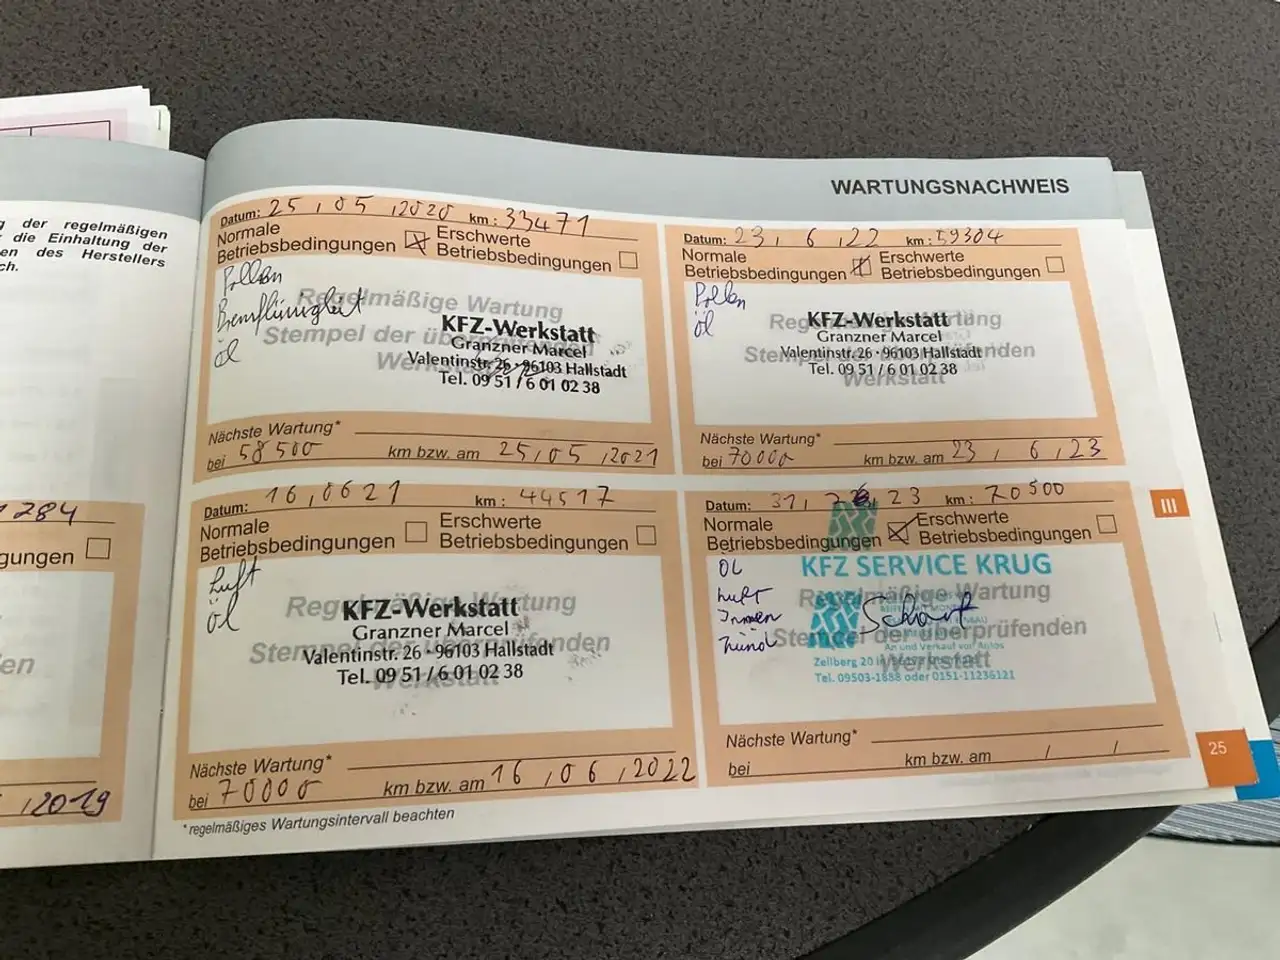 der regelmäßigen
die Einhaltung der
en des Herstellers
ch.
284
gungen
en
2019
WARTUNGSNACHWEIS
Datum: 25 , 05 , 2020 km : 33471
Normale
Betriebsbedingungen
Erschwerte
Betriebsbedingungen
Pollen
Bremsflüssigkeit
öl
Regelmäßige Wartung
Stempel der überprüfenden
Werkstatt
KFZ-Werkstatt
Granzner Marcel
Valentinstr. 26 · 96103 Hallstadt
Tel. 09 51 / 6 01 02 38
Nächste Wartung*
bei 58500 km bzw. am 25 , 05 , 2021
Datum: 23 , 6 , 22 km : 59304
Normale
Betriebsbedingungen
Erschwerte
Betriebsbedingungen
Pollen
öl
Regelmäßige Wartung
Stempel der überprüfenden
Werkstatt
KFZ-Werkstatt
Granzner Marcel
Valentinstr. 26 · 96103 Hallstadt
Tel. 09 51 / 6 01 02 38
Nächste Wartung*
bei 70000 km bzw. am 23 , 6 , 23
Datum: 16 , 06 21 km : 44517
Normale
Betriebsbedingungen
Erschwerte
Betriebsbedingungen
Luft
öl
Regelmäßige Wartung
Stempel der überprüfenden
Werkstatt
KFZ-Werkstatt
Granzner Marcel
Valentinstr. 26 · 96103 Hallstadt
Tel. 09 51 / 6 01 02 38
Nächste Wartung*
bei 70000 km bzw. am 16 , 06 , 2022
Datum: 31, 23 km : 70500
Normale
Betriebsbedingungen
Erschwerte
Betriebsbedingungen
ÖL
Luft
Innen
Zünd
KFZ SERVICE KRUG
Regelmäßige Wartung
Stempel der überprüfenden
Werkstatt
An und Verkauf von Autos
Zellberg 20
Tel. 09503-1888 oder 0151-11236121
Nächste Wartung*
bei km bzw. am / /
*regelmäßiges Wartungsintervall beachten
III
25